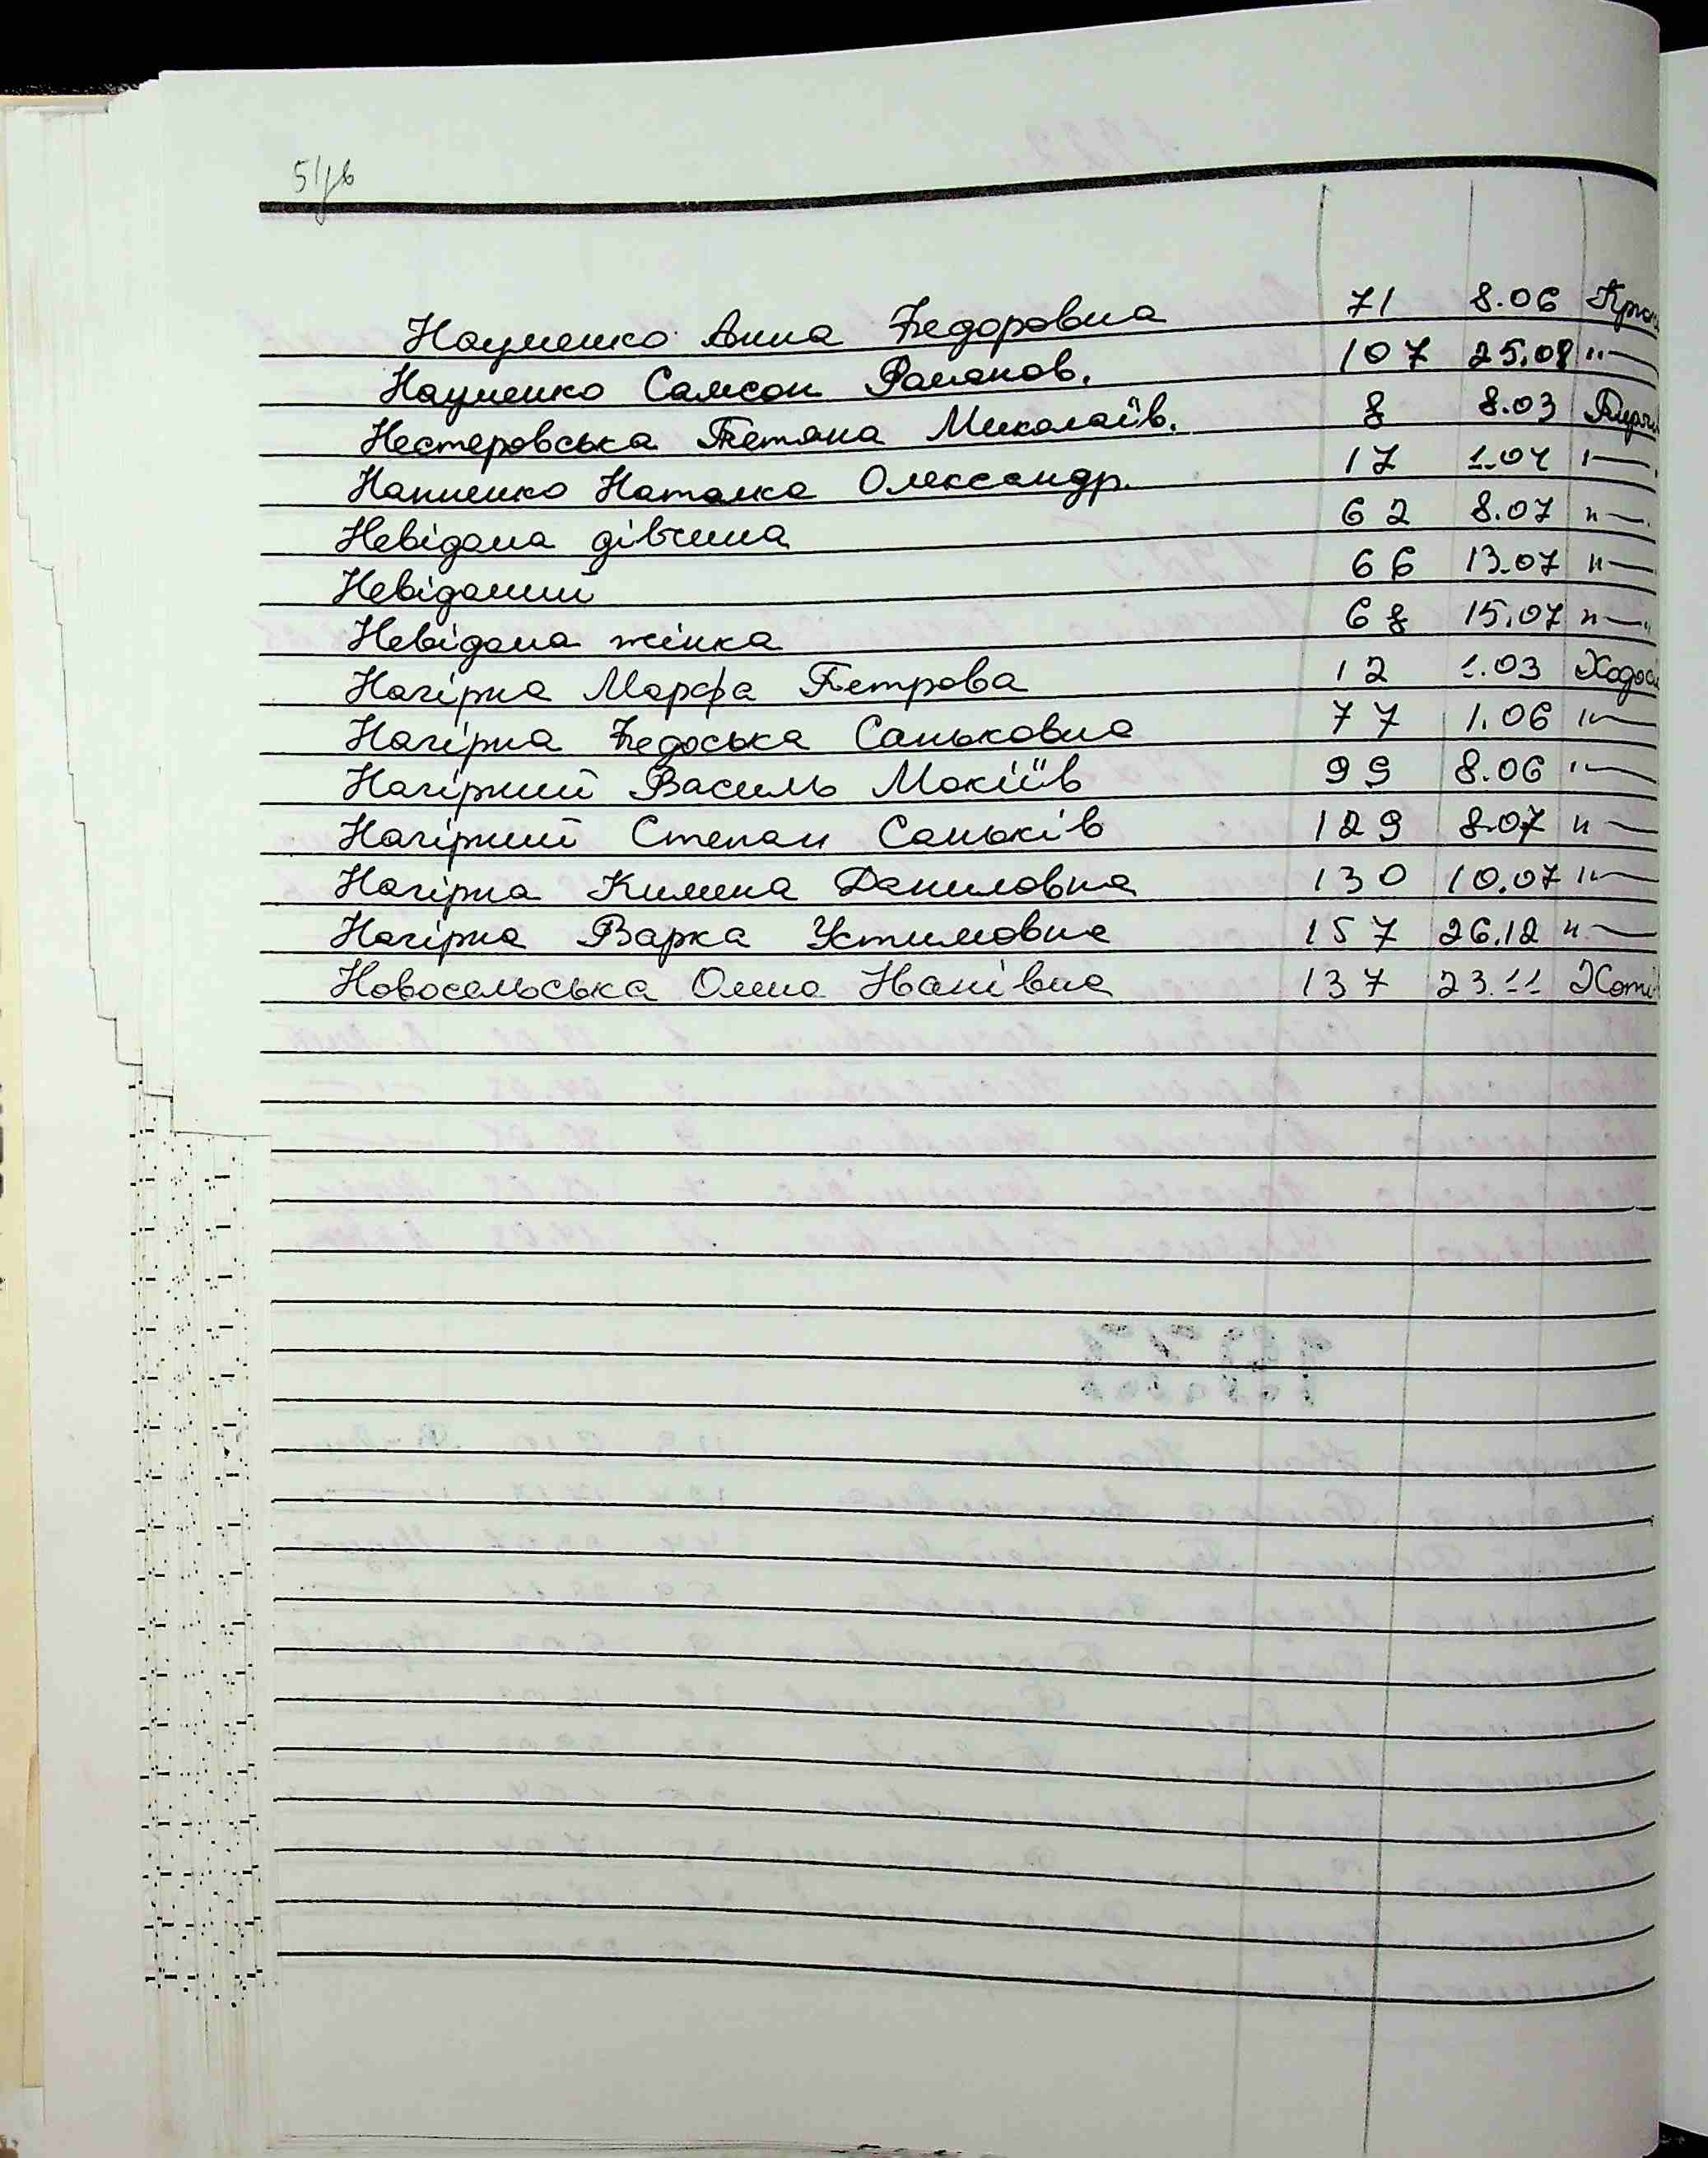 51зв
Науменко Анна Федоровна 71 8.06 Крю
Науменко Самсон Романов. 107 25.08 "—
Нестеровська Тетяна Миколаїв. 8 8.03 Пирог
Наппенко Наталка Олександр. 17 1.04 "—
Невідома дівчина 62 8.07 "—
Невідомий 66 13.07 "—
Невідома жінка 68 15.07 "—"
Нагірна Марфа Петрова 12 1.03 Ходос
Нагірна Федоська Саньковна 77 1.06 "—
Нагірний Василь Мокіїв 99 8.06 "—
Нагірний Степан Саньків 129 8.07 "—
Нагірна Килина Даниловна 130 10.07 "—
Нагірна Варка Устимовна 157 26.12 "—
Новосельська Олена Іванівна 137 23.11 Хоті